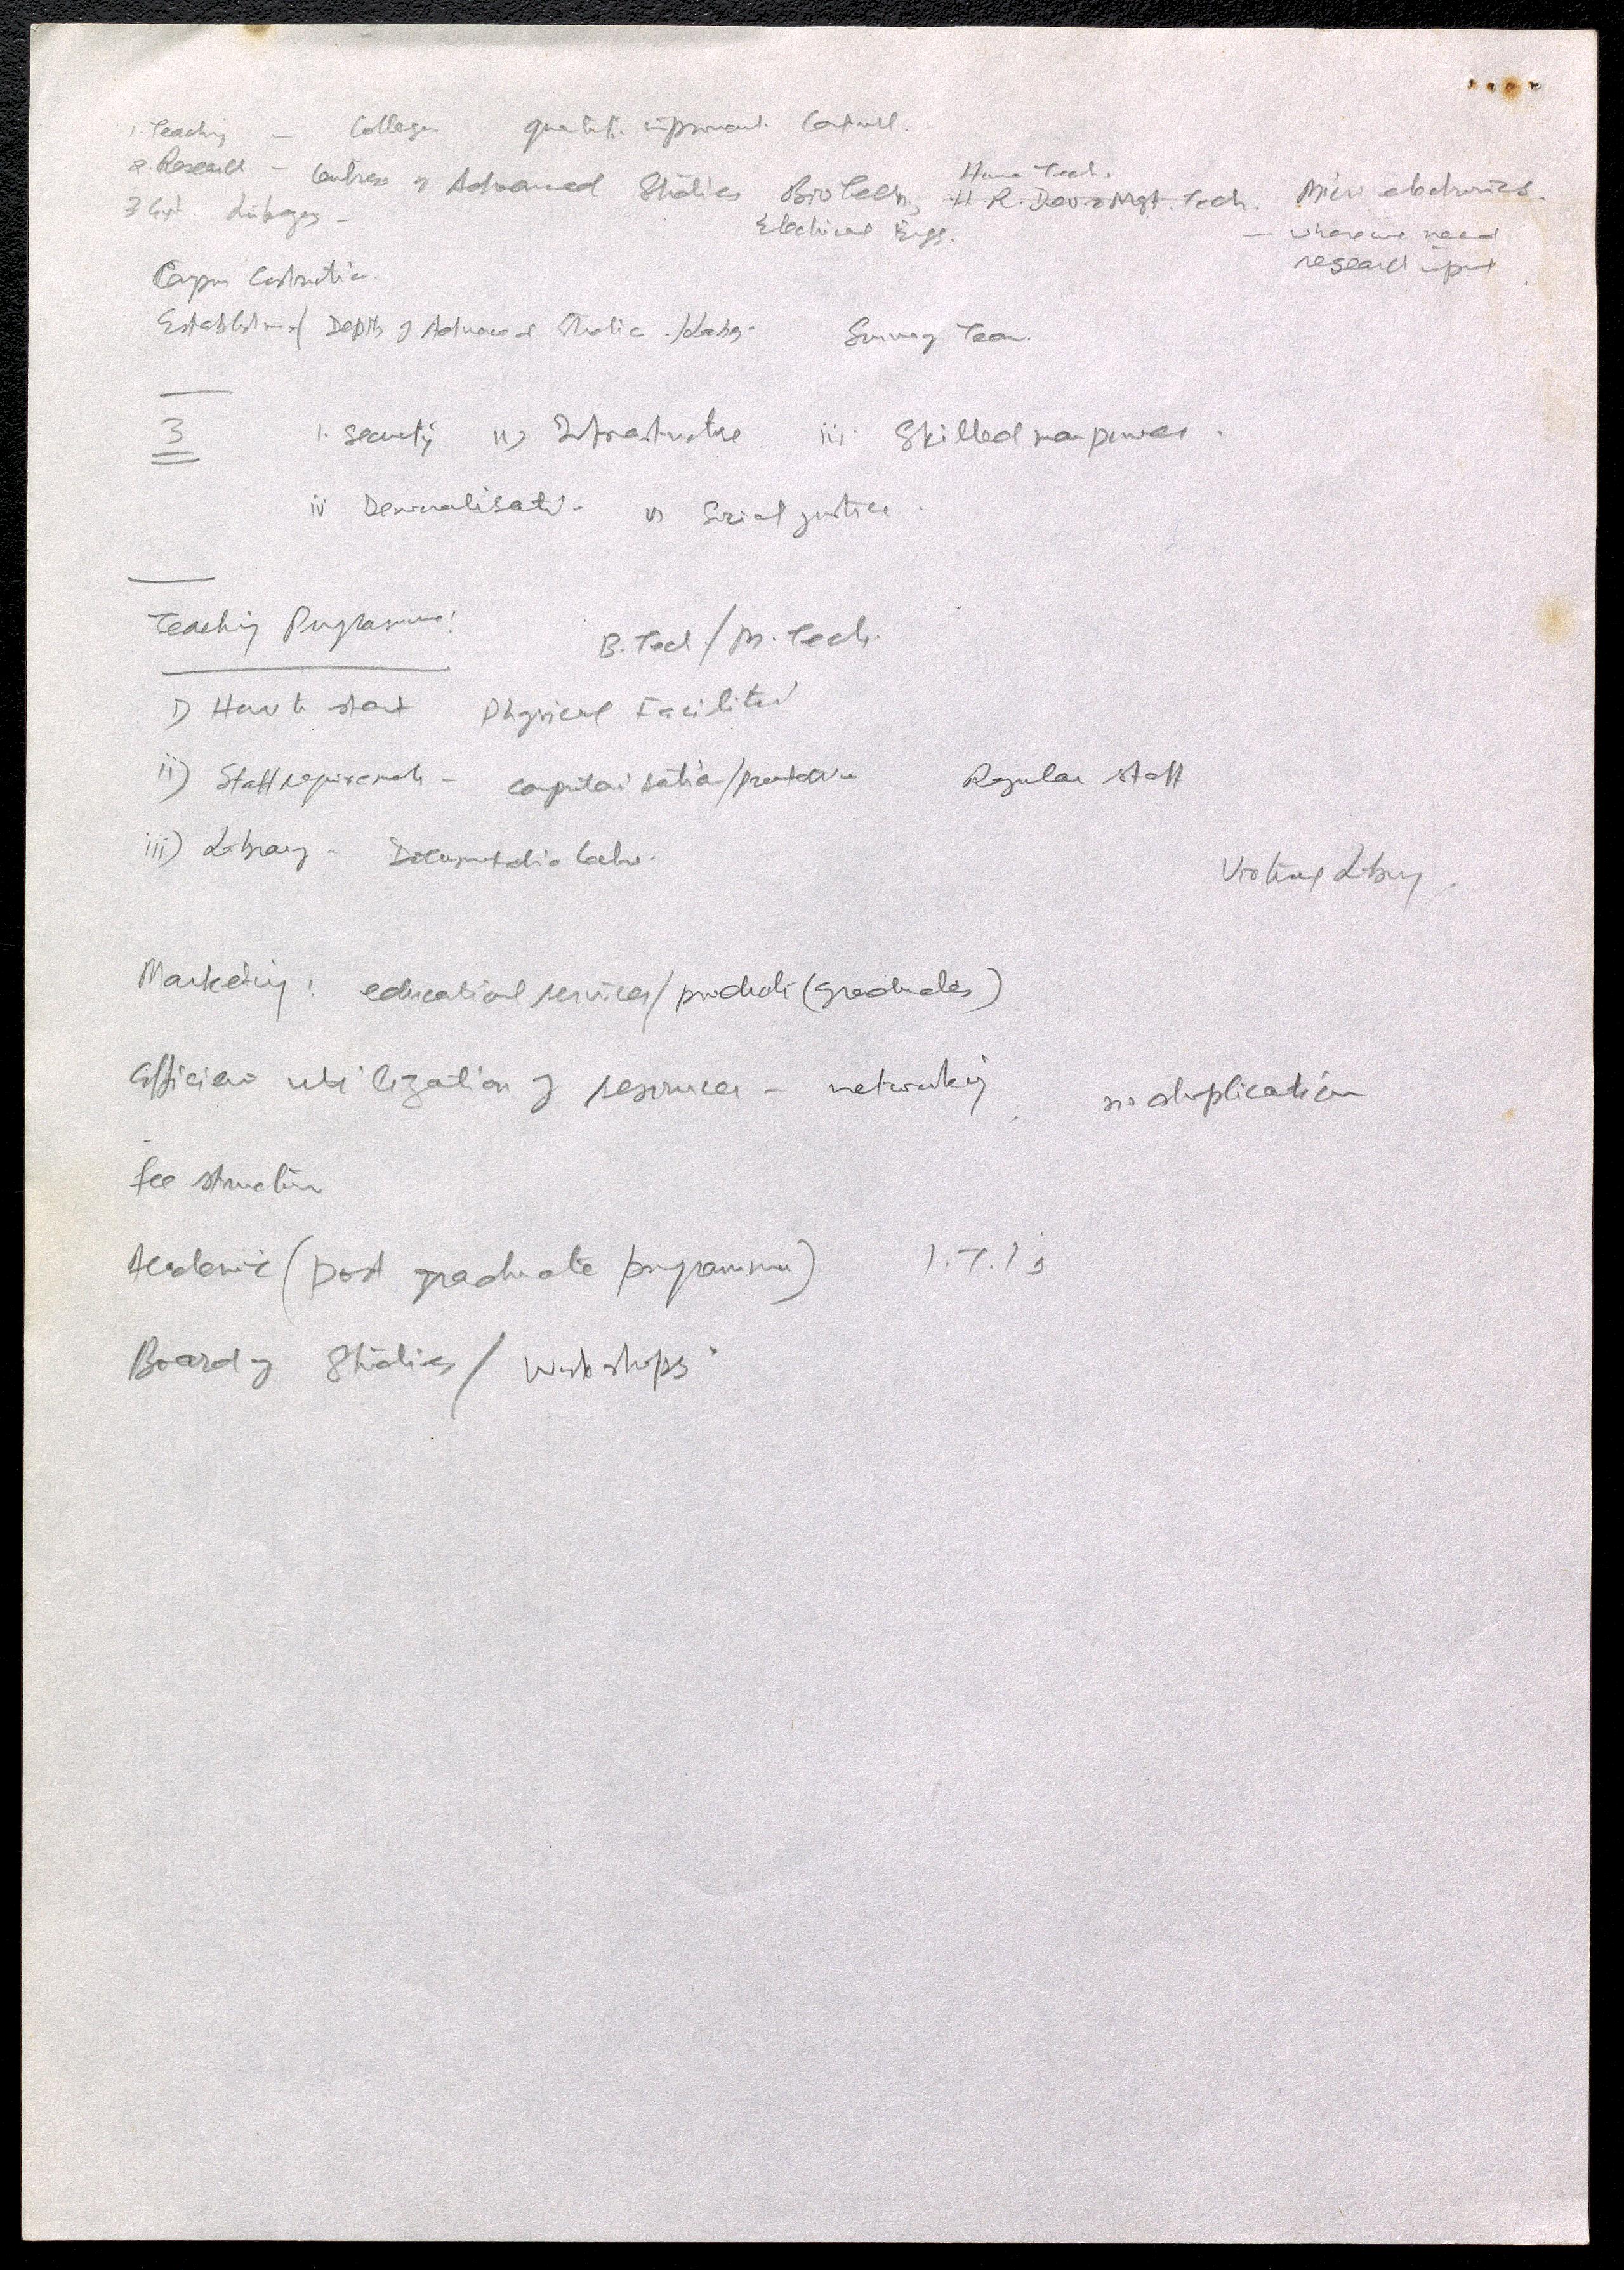 1 Teaching – Colleges quality improvement
2. Research – Centres of Advanced Studies Bio Tech, H.R. Dev. & Mgt. Tech. Micro electronics.
Home Tech.
3 Ext. linkages –
Electrical Engg.
– where we need
research input
Campus Construction
Establishment Deptts of Advanced Studies /Labs. Survey Team.
3 i. Security ii) Infrastructure iii. Skilled manpower.
iv v) Social justice.
Teaching Programme:
B.Tech./M.Tech.
i) How to start Physical Facilities
ii) Staff requirements – Regular staff
iii) Library – Documentation Centre.
Virtual Library.
Marketing: educational services/products (graduates)
Efficient utilization of resources – networking, no duplication
fee structure
Academic (post graduate programmes) I.T.I's
Board of Studies/Workshops